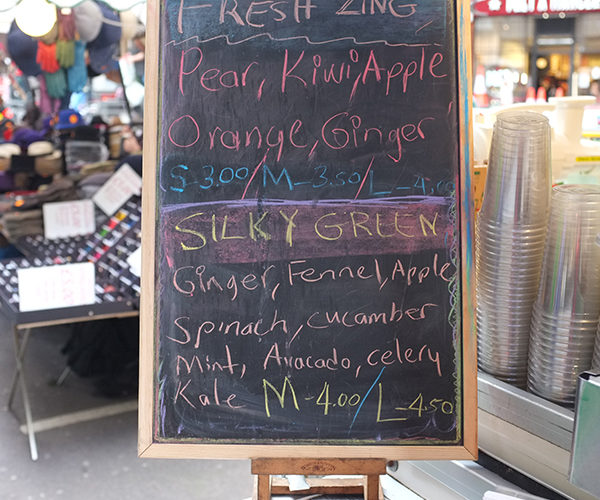 FRESH ZING
Pear, Kiwi, Apple
Orange, Ginger
S-3.00/M-3.50/L-4.00
SILKY GREEN
Ginger, Fennel, Apple
Spinach, cucamber
Mint, Avocado, celery
Kale M-4.00/L-4.50